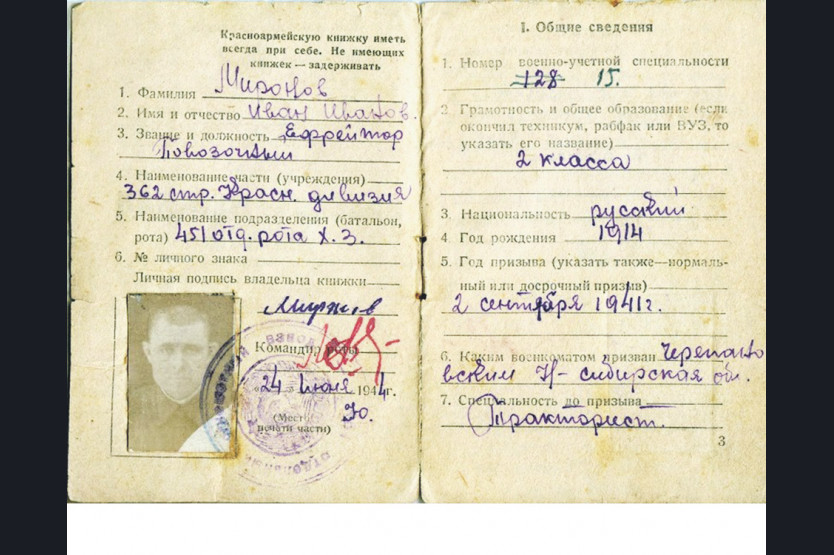 Красноармейскую книжку иметь
всегда при себе. Не имеющих
книжек — задерживать
1. Фамилия Миронов
2. Имя и отчество Иван Иванов.
3. Звание и должность Ефрейтор
Повозочный
4. Наименование части (учреждения)
362 стр. Красн. дивизия
5. Наименование подразделения (батальон,
рота) 451 отд. рота х. з.
6. № личного знака
Личная подпись владельца книжки
Командир роты
24 июня 1944 г.
(Место
печати части)
I. Общие сведения
1. Номер военно-учетной специальности
128 15.
2. Грамотность и общее образование (если
окончил техникум, рабфак или ВУЗ, то
указать его название)
2 класса
3. Национальность русский
4. Год рождения 1914
5. Год призыва (указать также—нормаль-
ный или досрочный призыв)
2 сентября 1941 г.
6. Каким военкоматом призван Черепано
вским Н-сибирская об.
7. Специальность до призыва
Тракторист.
3